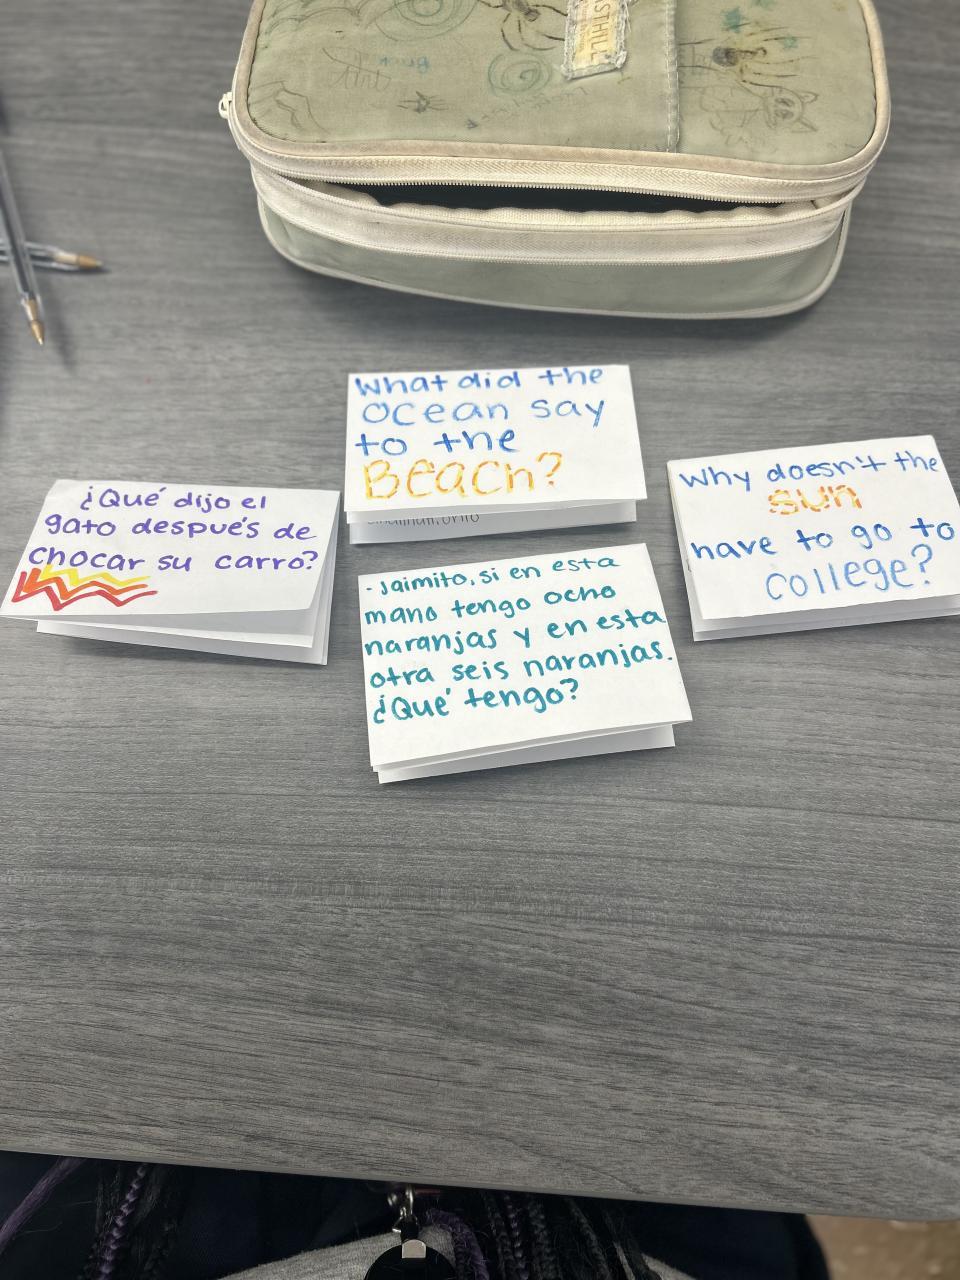 What did the
ocean say
to the
Beach?
Why doesn't the
sun
have to go to
college?
¿Qué dijo el
gato después de
chocar su carro?
- Jaimito, si en esta
mano tengo ocho
naranjas y en esta
otra seis naranjas.
¿Qué tengo?